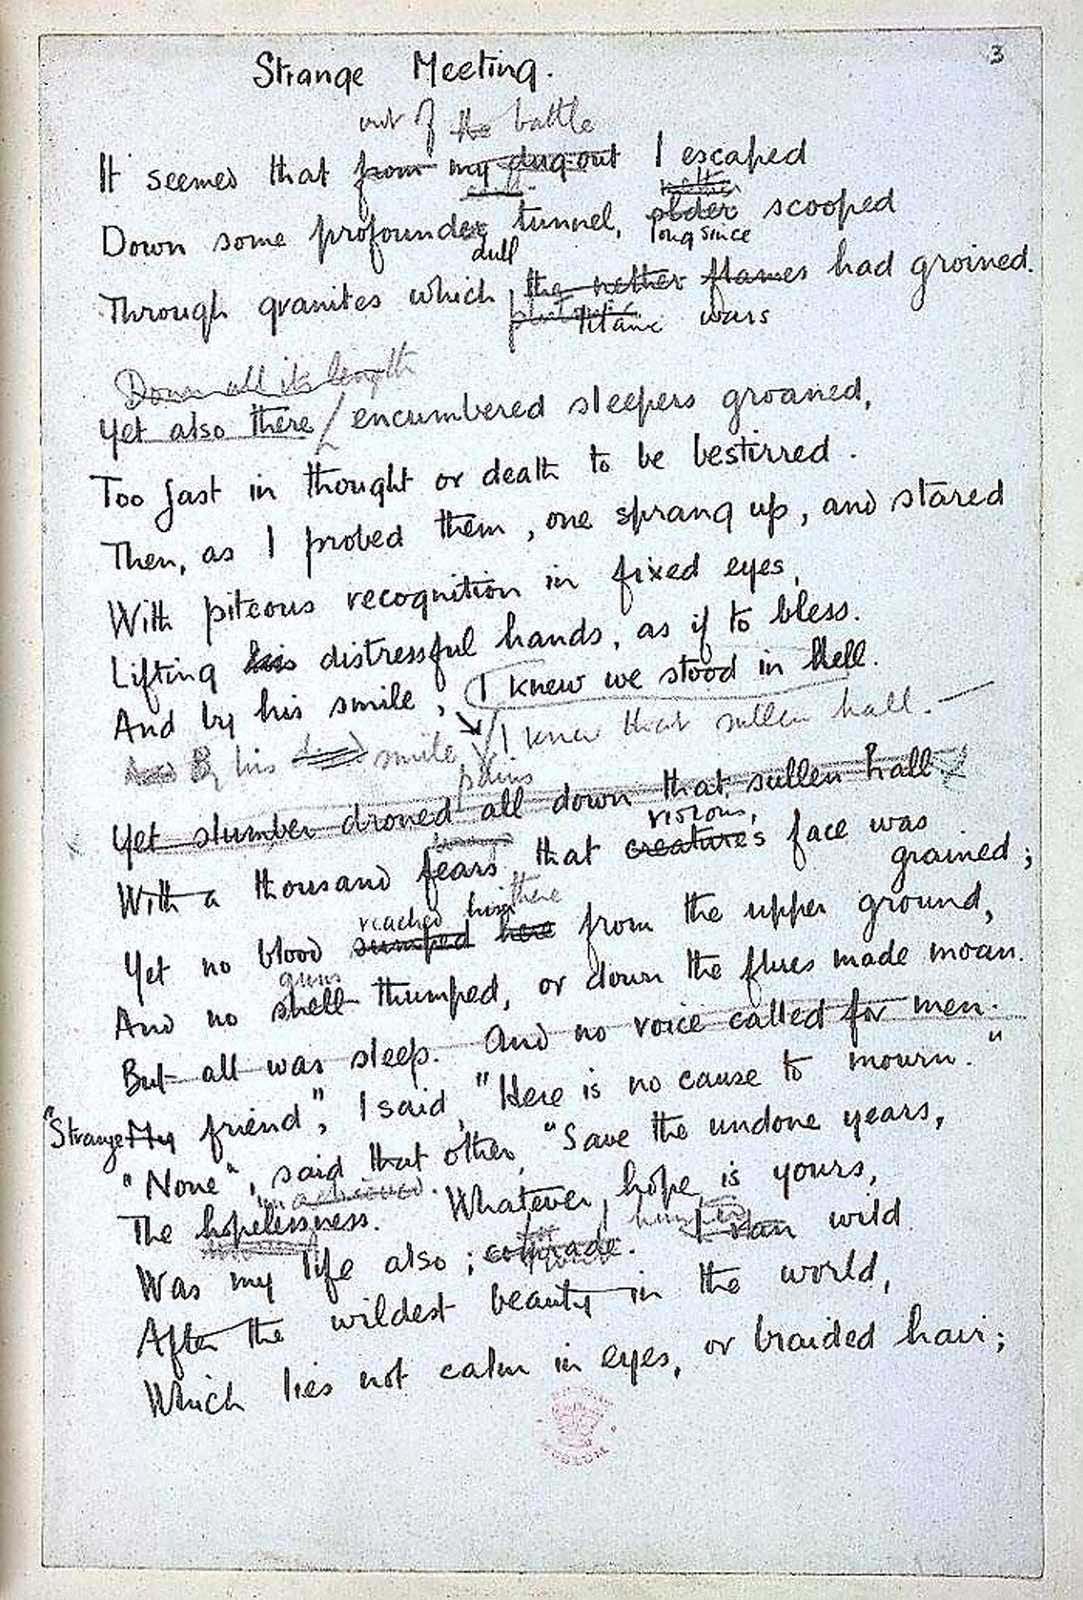 3
Strange Meeting.
out of the battle
It seemed that from my dug-out I escaped
nether
Down some profounder tunnel, older scooped
dull long since
Through granites which the nether flames had groined.
titanic wars
Down all its length
Yet also there encumbered sleepers groaned,
Too fast in thought or death to be bestirred.
Then, as I probed them, one sprang up, and stared
With piteous recognition in fixed eyes,
Lifting his distressful hands, as if to bless.
And by his smile, I knew we stood in Hell.
And By his dead smile I knew that sullen hall.
pains
Yet slumber droned all down that sullen hall
visions,
With a thousand fears that creatures face was
grained;
reached him there
Yet no blood sumped here from the upper ground,
guns
And no shell thumped, or down the flues made moan.
But all was sleep. And no voice called for men.
"Strange My friend", I said, "Here is no cause to mourn."
"None", said that other, "Save the undone years,
achieved
The hopelessness. Whatever hope is yours,
Was my life also; comrade. I ran wild
After the wildest beauty in the world,
Which lies not calm in eyes, or braided hair;